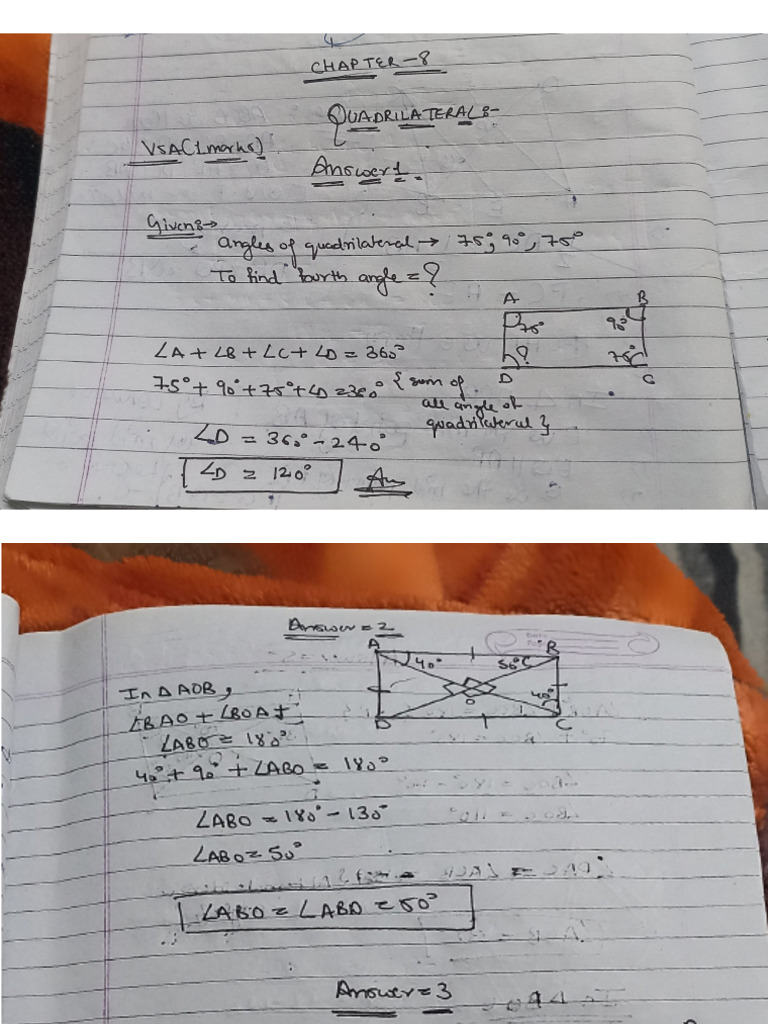 CHAPTER-8
QUADRILATERALS-
VSA(1 marks)
Answer 1.
Given:→
angles of quadrilateral → 75°, 90°, 75°
To find fourth angle = ?
A B
75° 90°
∠A + ∠B + ∠C + ∠D = 360°
? 75°
D C
75° + 90° + 75° + ∠D = 360° { sum of
all angle of
quadrilateral }
∠D = 360° - 240°
∠D = 120° Ans
Answer = 2
A B
40° 50°
In ΔAOB,
40°
O
∠BAO + ∠BOA +
D C
∠ABO = 180°
40° + 90° + ∠ABO = 180°
∠ABO = 180° - 130°
∠ABO = 50°
∠ABO = ∠ABD = 50°
Answer = 3